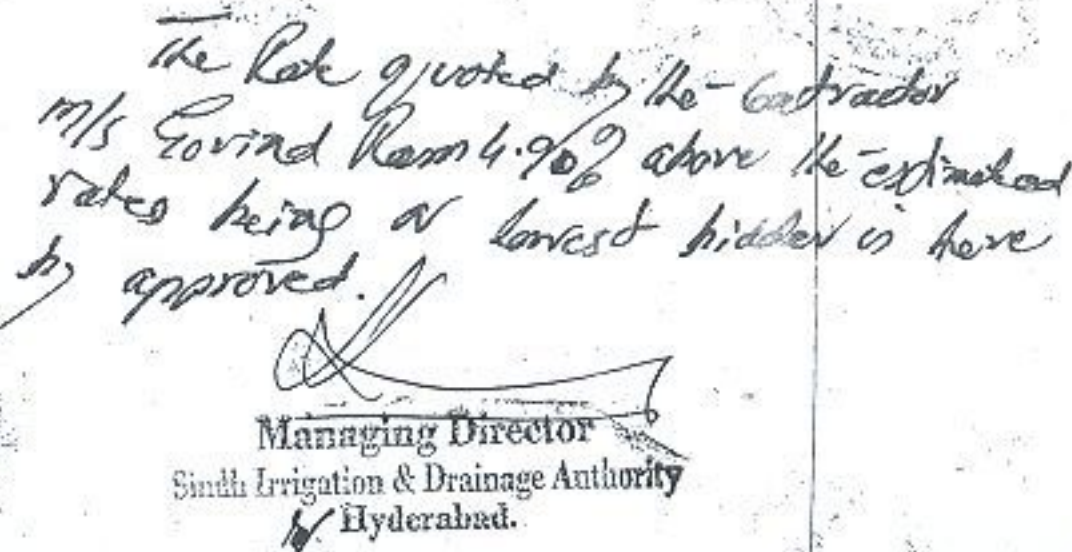 The Rate quoted by the Contractor
M/s Govind Ram 4.90% above the estimated
rates being a lowest bidder is here
by approved.
Managing Director
Sindh Irrigation & Drainage Authority
Hyderabad.